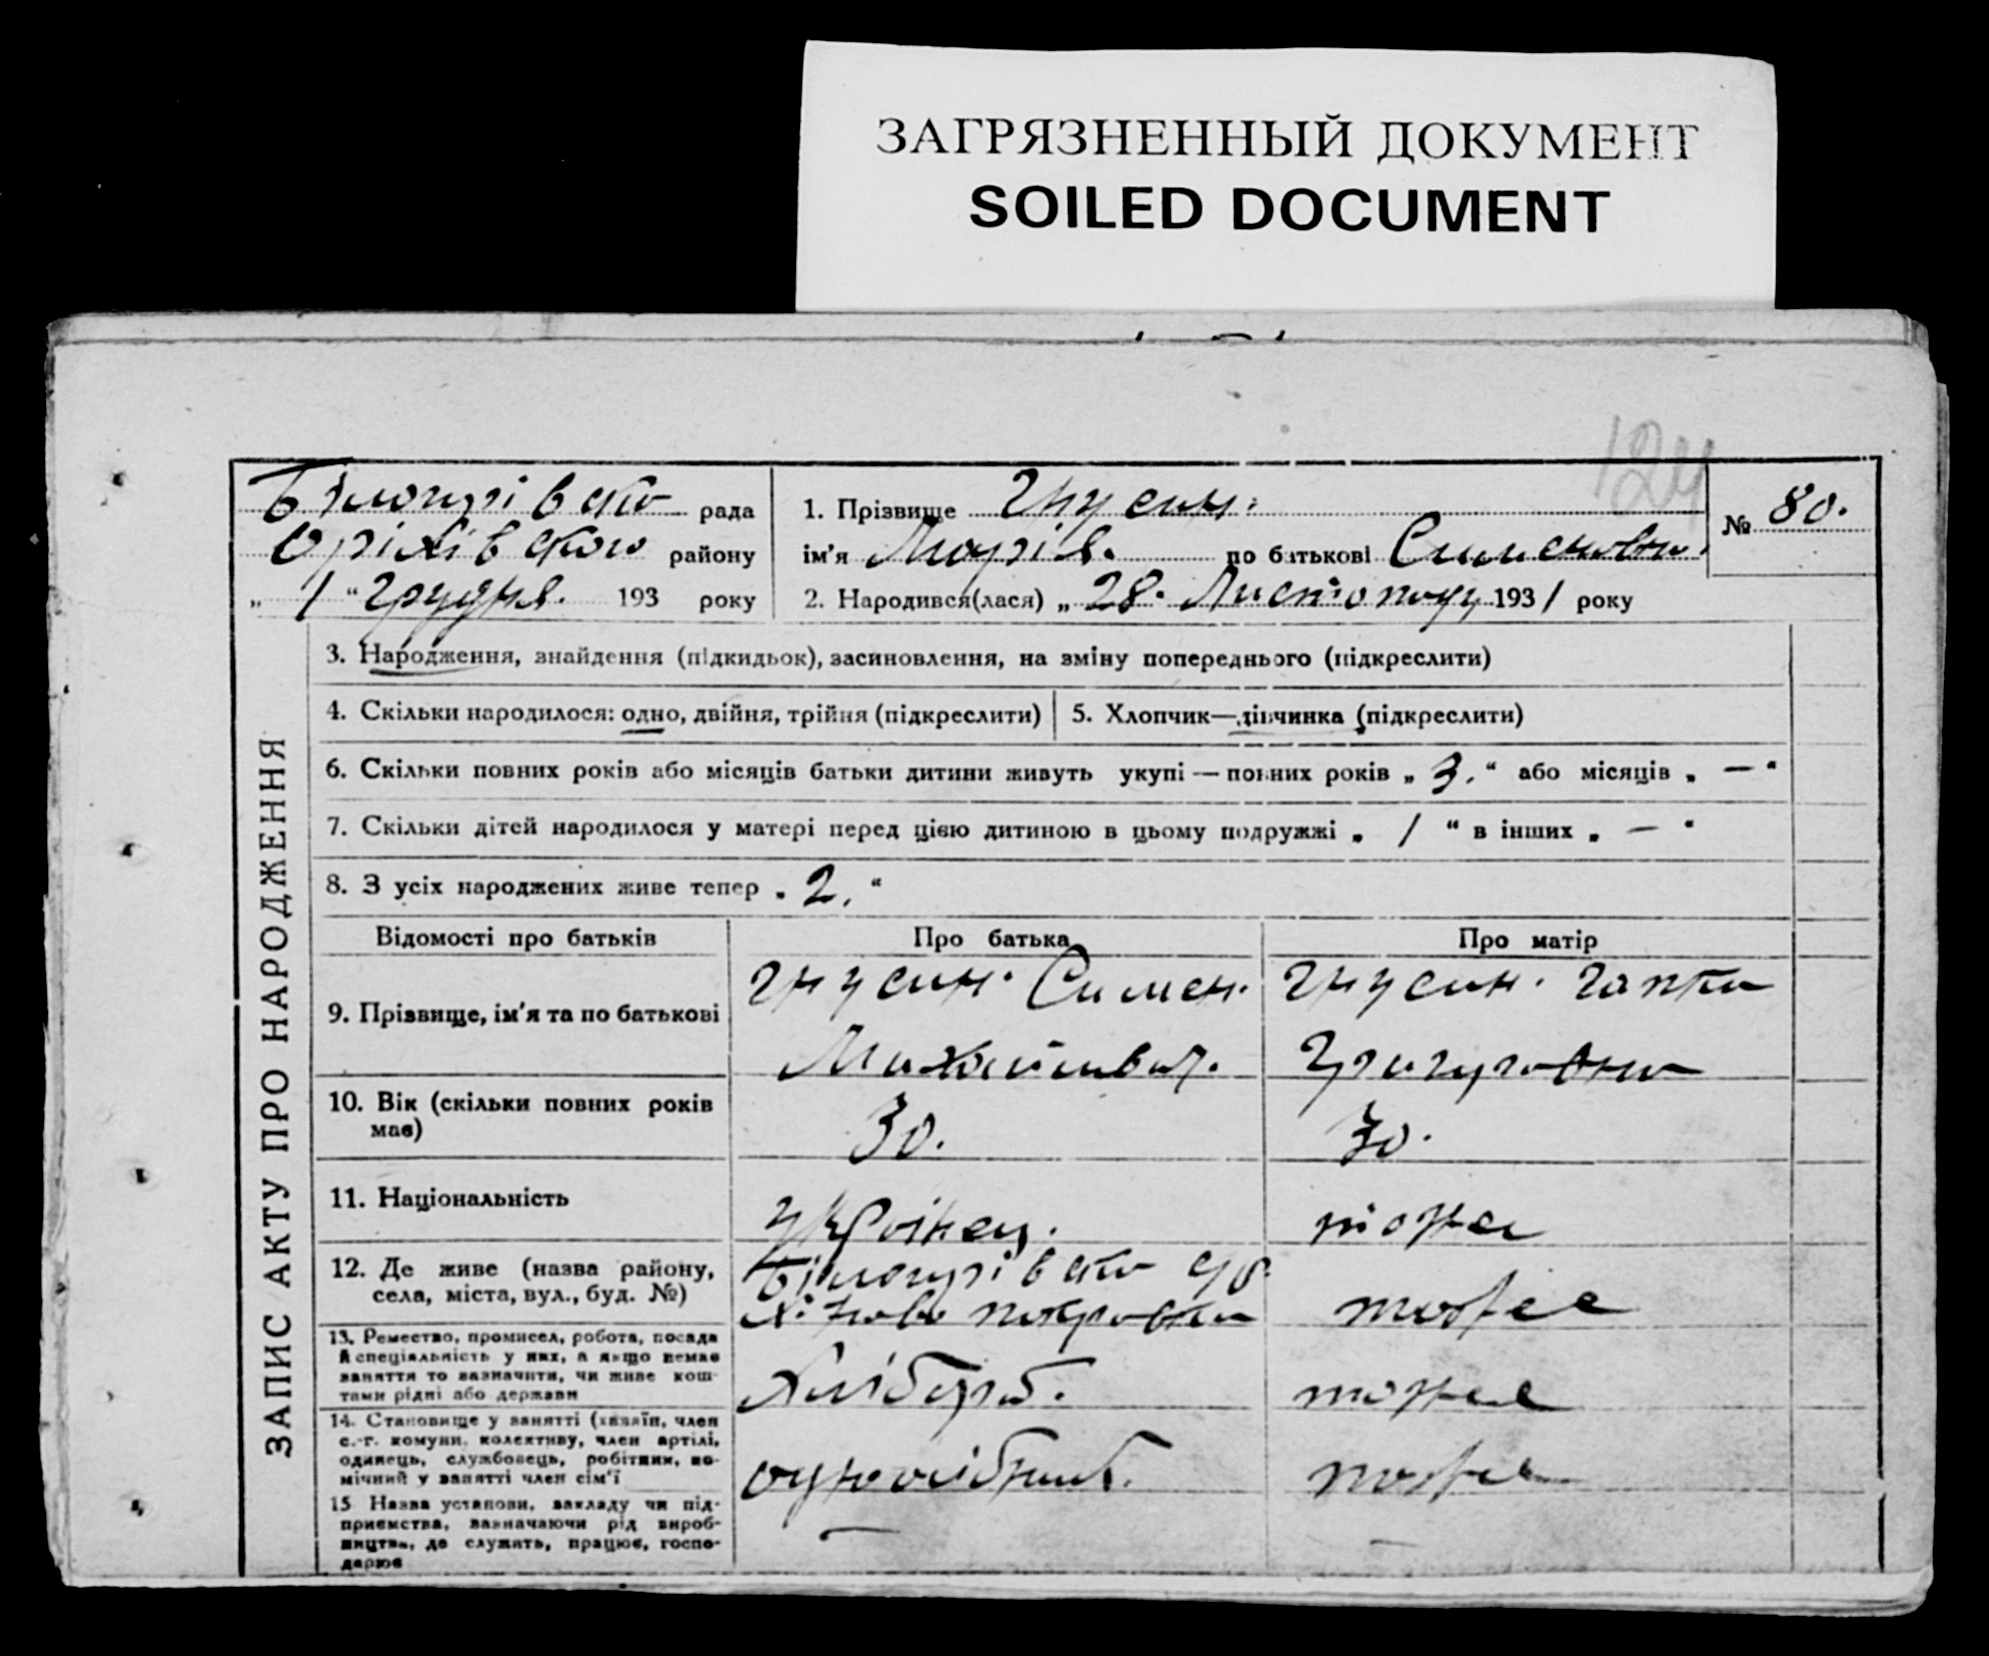 ЗАГРЯЗНЕННЫЙ ДОКУМЕНТ
SOILED DOCUMENT
124
Білогірівська рада
Оріхівського району
„ 1 “ грудня. 193 року
1. Прізвище Гнусин.
ім'я Марія. по батькові Сименовна.
2. Народився(лася) „ 28. Листопаду 1931 року
№ 80.
ЗАПИС АКТУ ПРО НАРОДЖЕННЯ
3. Народження, знайдення (підкидьок), засиновлення, на зміну попереднього (підкреслити)
4. Скільки народилося: одно, двійня, трійня (підкреслити)
5. Хлопчик—дівчинка (підкреслити)
6. Скільки повних років або місяців батьки дитини живуть укупі — повних років „ 3. “ або місяців „ — “
7. Скільки дітей народилося у матері перед цією дитиною в цьому подружжі „ 1 “ в інших „ — “
8. З усіх народжених живе тепер „ 2. “
Відомості про батьків Про батька Про матір
9. Прізвище, ім'я та по батькові
Гнусин. Симен.
Михайлович.
Гнусин. Гапка
Григоровна
10. Вік (скільки повних років
має)
30.
30.
11. Національність
Українец.
тоже
12. Де живе (назва району,
села, міста, вул., буд. №)
Білогірівська
Х. Ново покровка
тоже
13. Ремество, промисел, робота, посада
й спеціяльність у них, а якщо немає
заняття то зазначити, чи живе кош-
тами рідні або держави
Хлібороб.
тоже
14. Становище у занятті (хазяїн, член
с.-г. комуни, колективу, член артілі,
одинець, службовець, робітник, по-
мічний у занятті член сім'ї
одноосібник.
тоже
15 Назва установи, закладу чи під-
приємства, зазначаючи рід вироб-
ництва, де служить, працює, госпо-
дарює
—
—